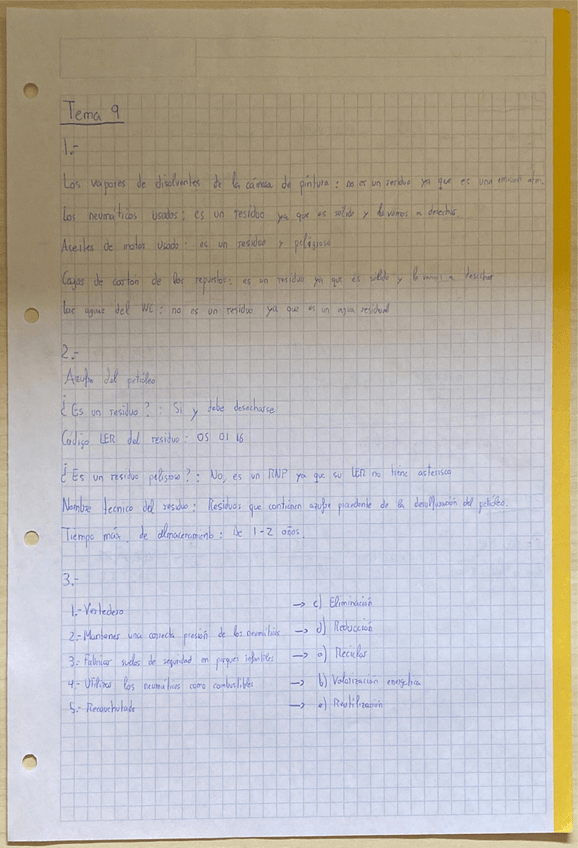 Tema 9
1.-
Los vapores de disolventes de la cámara de pintura: no es un residuo ya que es una emisión atm.
Los neumáticos usados: es un residuo ya que es sólido y lo vamos a desechar.
Aceites de motor usado: es un residuo y peligroso
Cajas de cartón de los repuestos: es un residuo ya que es solido y lo vamos a desechar
Las aguas del WC: no es un residuo ya que es un agua residual
2.-
Azufre del petróleo
¿Es un residuo?: Si y debe desecharse
Código LER del residuo: 05 01 16
¿Es un residuo peligroso?: No, es un RNP ya que su LER no tiene asterisco
Nombre tecnico del residuo: Residuos que contienen azufre procedente de la desulfuración del petróleo.
Tiempo máx. de almacenamiento: De 1-2 años.
3.-
1.- Vertedero → c) Eliminación
2.- Mantener una correcta presión de los neumáticos → d) Reducción
3.- Fabricar suelos de seguridad en parques infantiles → a) Reciclar
4.- Utilizar los neumáticos como combustibles → b) Valorización energética
5.- Recauchutado → e) Reutilización